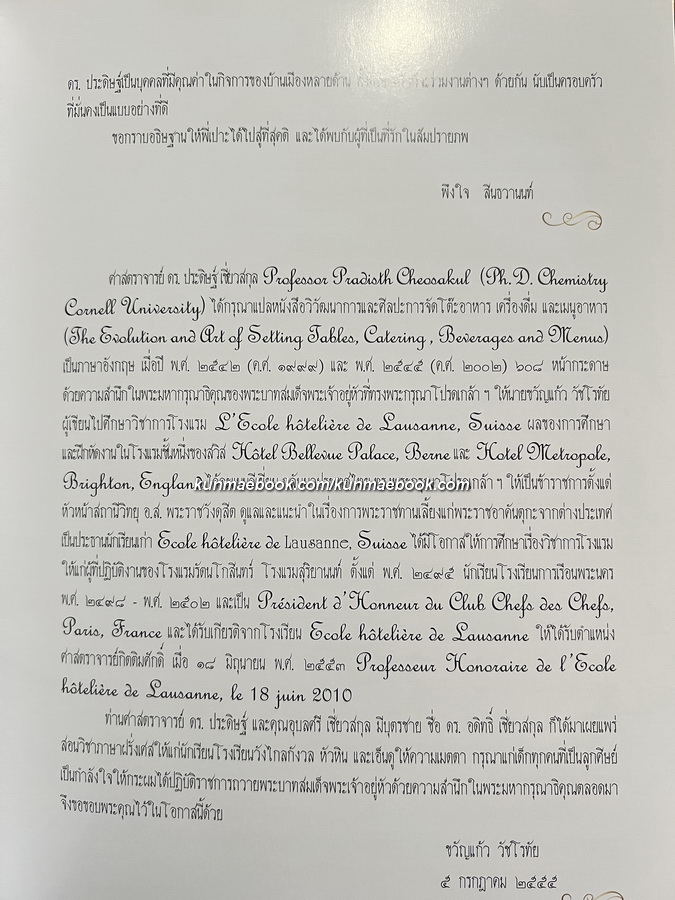 ดร. ประดิษฐ์เป็นบุคคลที่มีคุณค่าในกิจการของบ้านเมืองหลายด้าน งานต่างๆ ด้วยกัน นับเป็นครอบครัว
ที่มั่นคงเป็นแบบอย่างที่ดี
ขอกราบอธิษฐานให้พี่เปาะได้ไปสู่ที่สุคติ และได้พบกับผู้ที่เป็นที่รักในสัมปรายภพ
พึงใจ สินธวานนท์
ศาสตราจารย์ ดร. ประดิษฐ์ เชี่ยวสกุล Professor Pradisth Cheosakul (Ph.D. Chemistry
Cornell University) ได้กรุณาแปลหนังสือวิวัฒนาการและศิลปะการจัดโต๊ะอาหาร เครื่องดื่ม และเมนูอาหาร
(The Evolution and Art of Setting Tables, Catering , Beverages and Menus)
เป็นภาษาอังกฤษ เมื่อปี พ.ศ. ๒๕๔๒ (ค.ศ. ๑๙๙๙) และ พ.ศ. ๒๕๔๕ (ค.ศ. ๒๐๐๒) ๖๐๘ หน้ากระดาษ
ด้วยความสำนึกในพระมหากรุณาธิคุณของพระบาทสมเด็จพระเจ้าอยู่หัวที่ทรงพระกรุณาโปรดเกล้า ฯ ให้นายขวัญแก้ว วัชโรทัย
ผู้เขียนไปศึกษาวิชาการโรงแรม L'Ecole hôtelière de Lausanne, Suisse ผลของการศึกษา
และฝึกหัดงานในโรงแรมชั้นหนึ่งของสวิส Hôtel Bellevue Palace, Berne และ Hotel Metropole,
Brighton, England โปรดเกล้า ฯ ให้เป็นข้าราชการตั้งแต่
kunmaebook.com/kunmaebook.com
หัวหน้าสถานีวิทยุ อ.ส. พระราชวังดุสิต ดูแลและแนะนำในเรื่องการพระราชทานเลี้ยงแก่พระราชอาคันตุกะจากต่างประเทศ
เป็นประธานนักเรียนเก่า Ecole hôtelière de Lausanne, Suisse ได้มีโอกาสให้การศึกษาเรื่องวิชาการโรงแรม
ให้แก่ผู้ที่ปฏิบัติงานของโรงแรมรัตนโกสินทร์ โรงแรมสุริยานนท์ ตั้งแต่ พ.ศ. ๒๔๙๕ นักเรียนโรงเรียนการเรือนพระนคร
พ.ศ. ๒๔๙๘ - พ.ศ. ๒๕๐๒ และเป็น Président d'Honneur du Club Chefs des Chefs,
Paris, France และได้รับเกียรติจากโรงเรียน Ecole hôtelière de Lausanne ให้ได้รับตำแหน่ง
ศาสตราจารย์กิตติมศักดิ์ เมื่อ ๑๘ มิถุนายน พ.ศ. ๒๕๕๓ Professeur Honoraire de l'Ecole
hôtelière de Lausanne, le 18 juin 2010
ท่านศาสตราจารย์ ดร. ประดิษฐ์ และคุณอุบลศรี เชี่ยวสกุล มีบุตรชาย ชื่อ ดร. อดิทธิ์ เชี่ยวสกุล ก็ได้มาเผยแพร่
สอนวิชาภาษาฝรั่งเศสให้แก่นักเรียนโรงเรียนวังไกลกังวล หัวหิน และเอ็นดูให้ความเมตตา กรุณาแก่เด็กทุกคนที่เป็นลูกศิษย์
เป็นกำลังใจให้กระผมได้ปฏิบัติราชการถวายพระบาทสมเด็จพระเจ้าอยู่หัวด้วยความสำนึกในพระมหากรุณาธิคุณตลอดมา
จึงขอขอบพระคุณไว้ในโอกาสนี้ด้วย
ขวัญแก้ว วัชโรทัย
๕ กรกฎาคม ๒๕๕๕